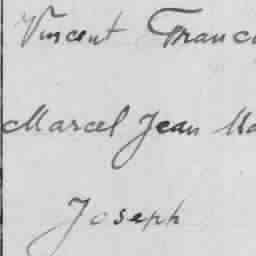 Vincent Franc
Marcel Jean Ma
Joseph